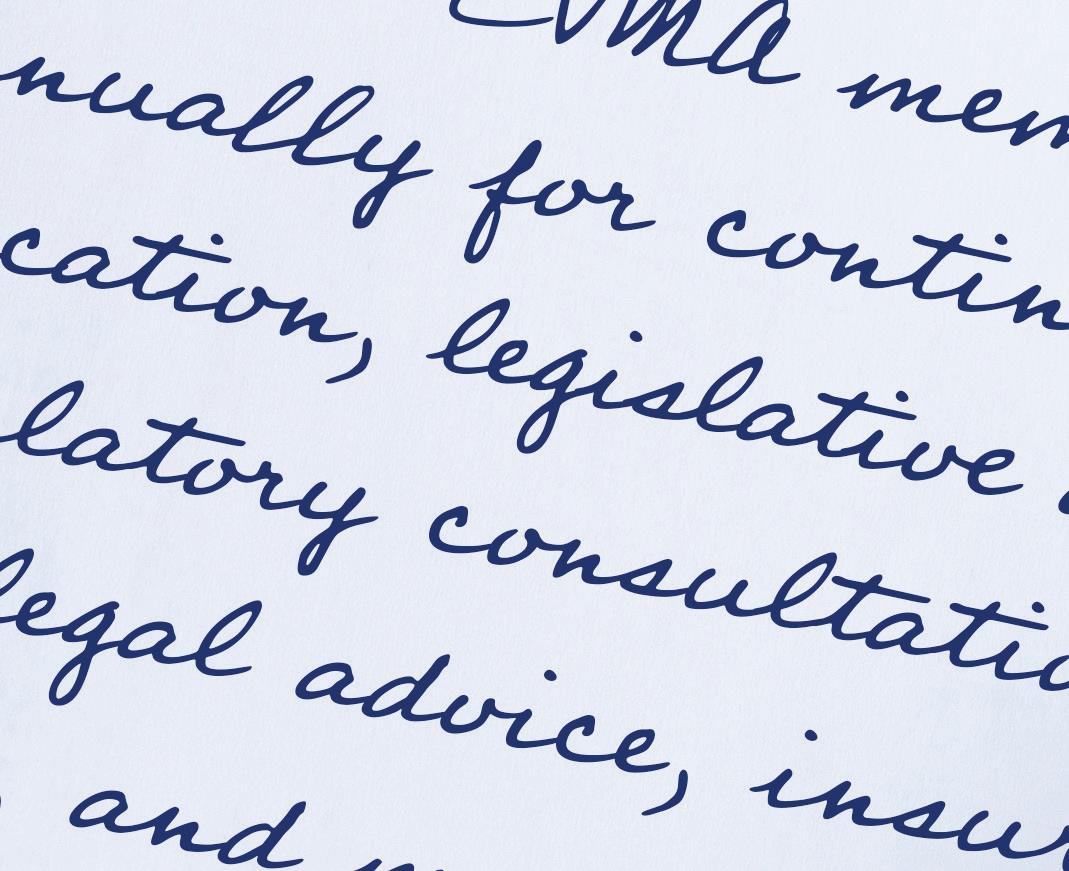 VMA mem
nually for contin
cation, legislative
latory consultatio
legal advice, insur
and